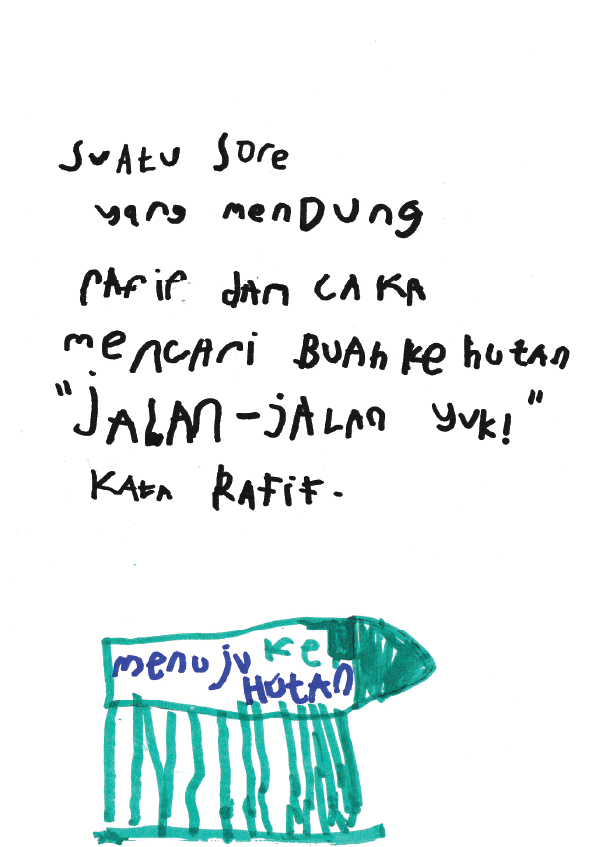 SUATU SORE
yang menDUng
RAFIF dAn CAKA
mencARi BUAh ke hutAn
"JALAN-jALAn yuk!"
KAtA RAFIF.
menuju ke
HUtAn